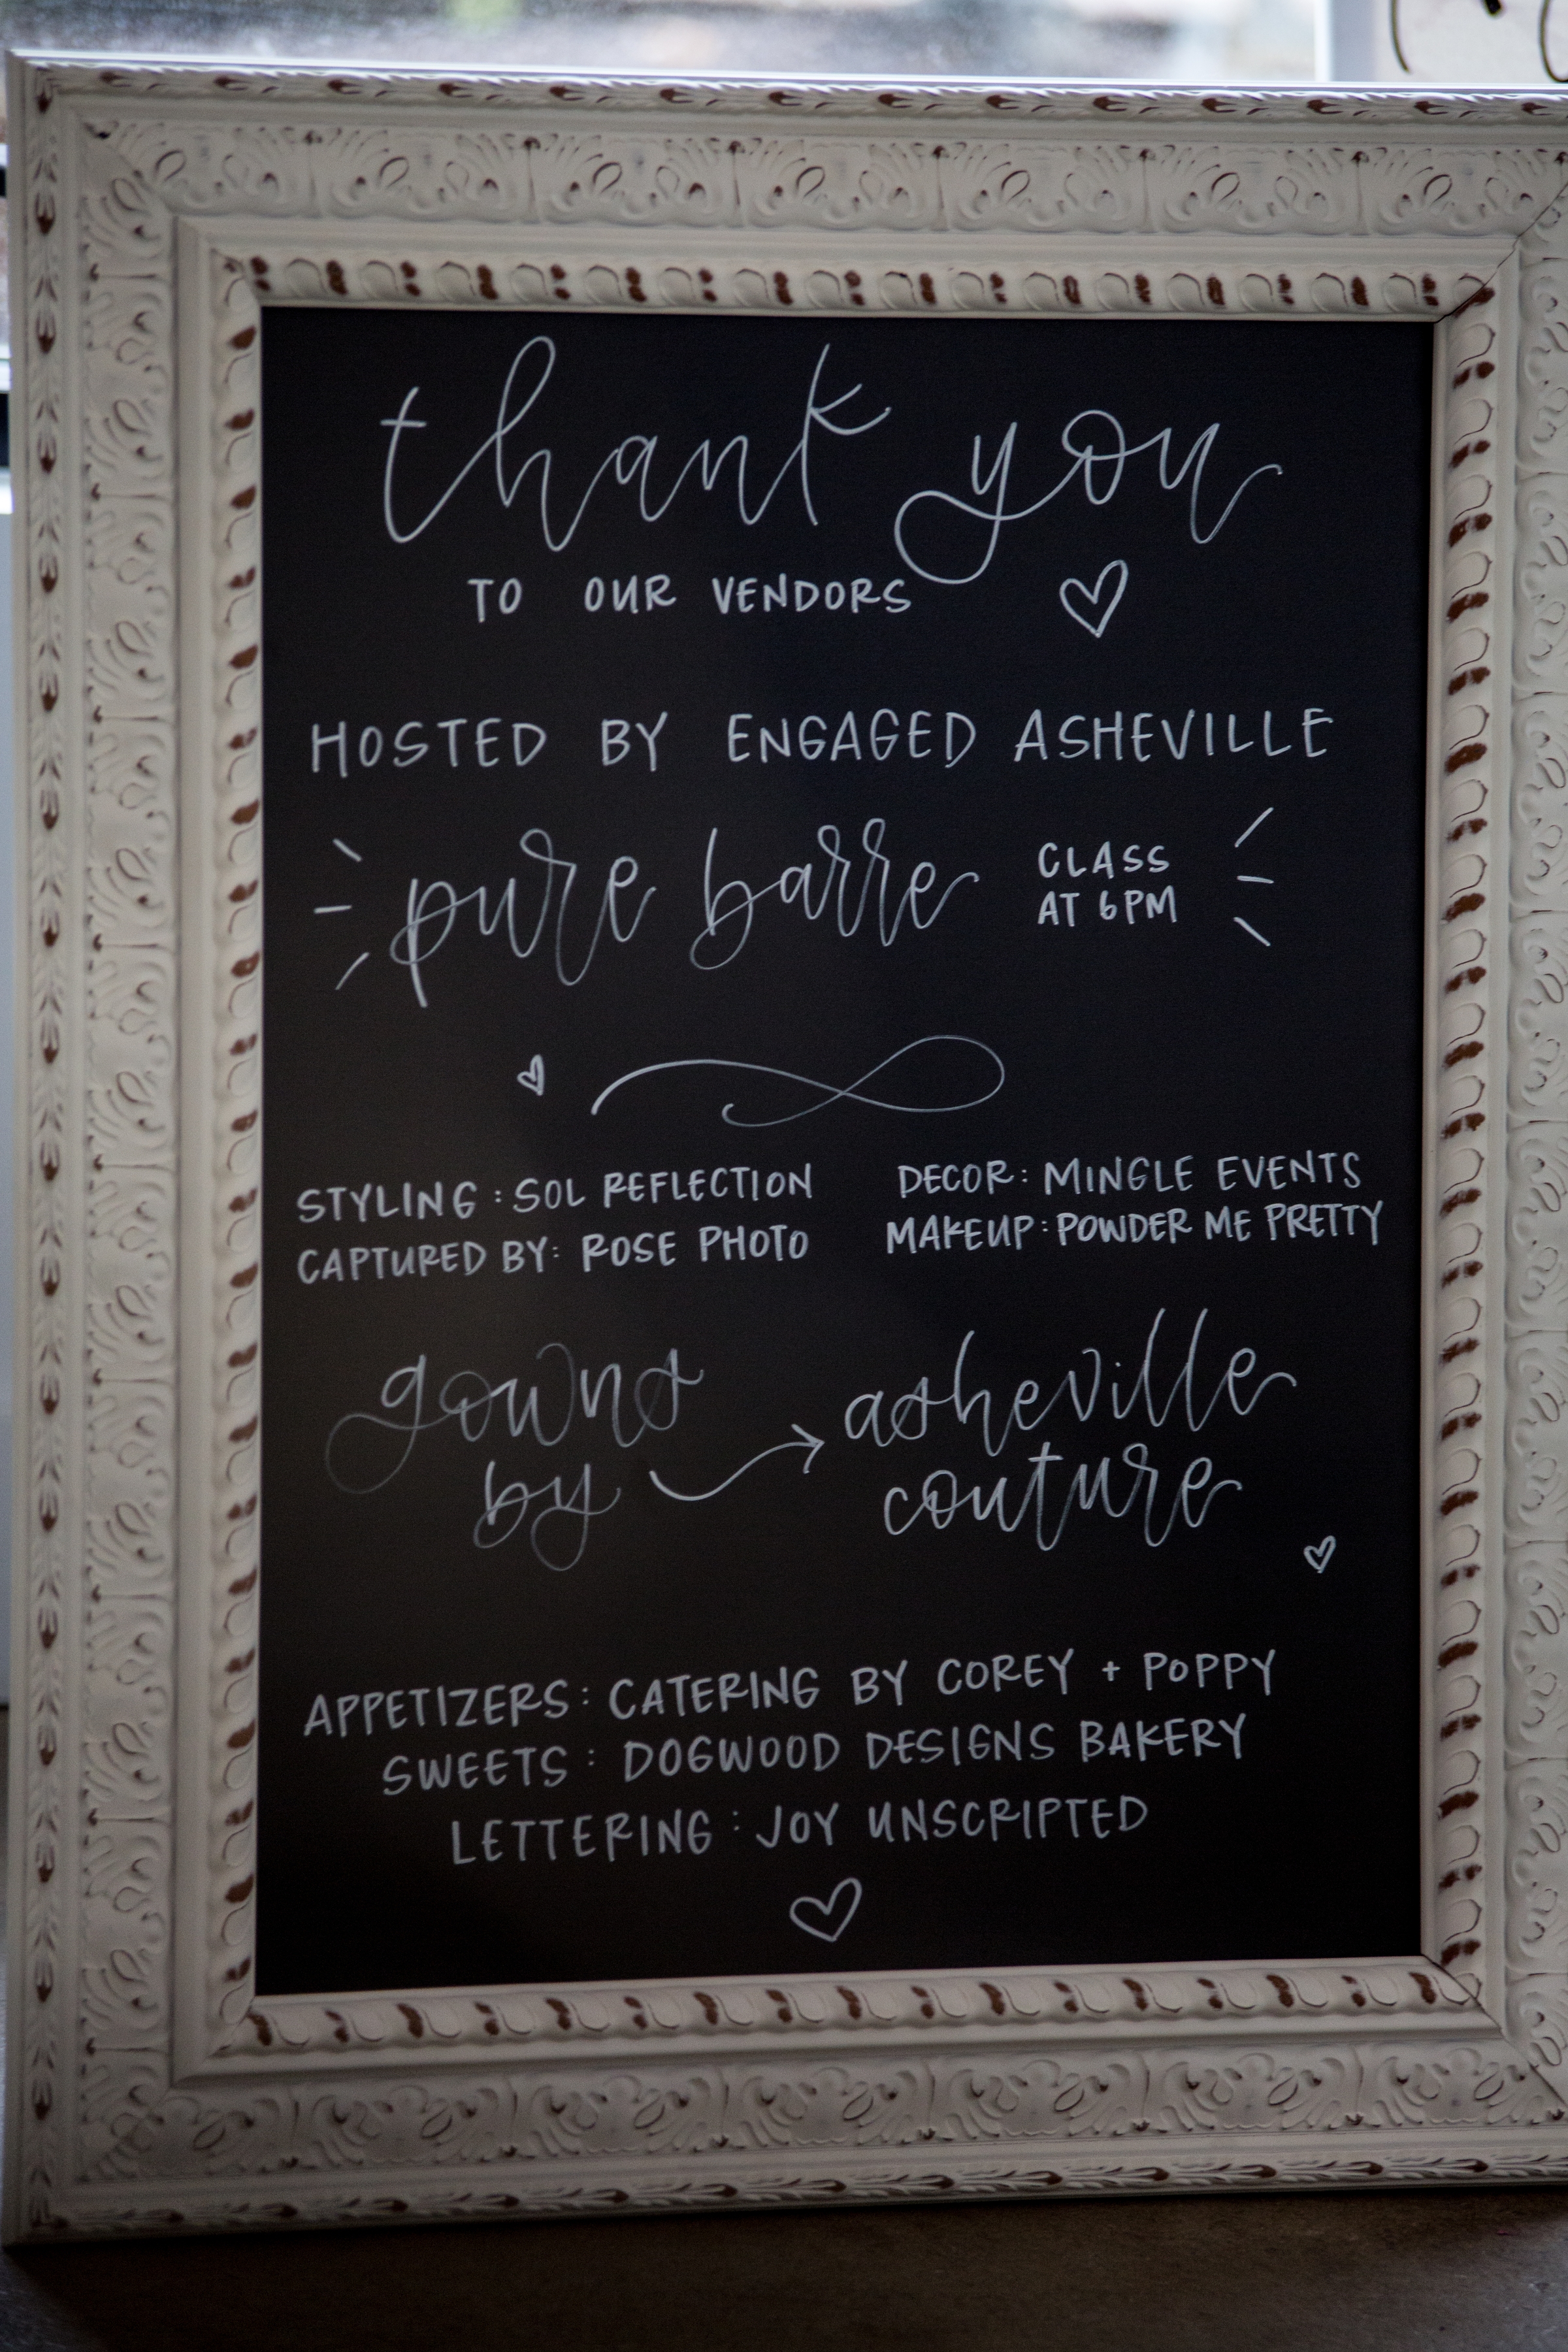 thank you
TO OUR VENDORS
HOSTED BY ENGAGED ASHEVILLE
pure barre CLASS
AT 6PM
STYLING: SOL REFLECTION
CAPTURED BY: ROSE PHOTO
DECOR: MINGLE EVENTS
MAKEUP: POWDER ME PRETTY
gowns
by
asheville
couture
APPETIZERS: CATERING BY COREY + POPPY
SWEETS: DOGWOOD DESIGNS BAKERY
LETTERING: JOY UNSCRIPTED